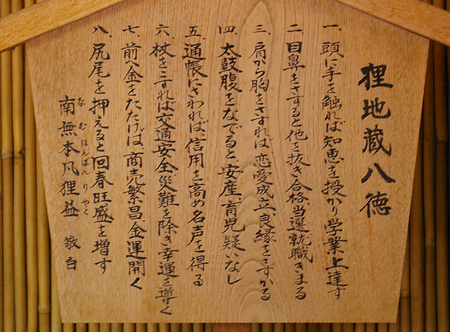 狸地蔵八徳
一、頭に手を触れば知恵を授かり学業上達す
二、目鼻をさすると他を抜き合格当選就職きまる
三、肩から胸をさすれば、恋愛成立、良縁をさずかる
四、太鼓腹をなでると安産、育児疑いなし
五、通帳にさわれば、信用を高め名声を得る
六、杖をこすれば交通安全、災難を除き幸運を導く
七、前八金をたたけば、商売繁昌、金運開く
八、尻尾を押えると回春旺盛を増す
南無本凡狸益 敬白
なむほんぼんりやく